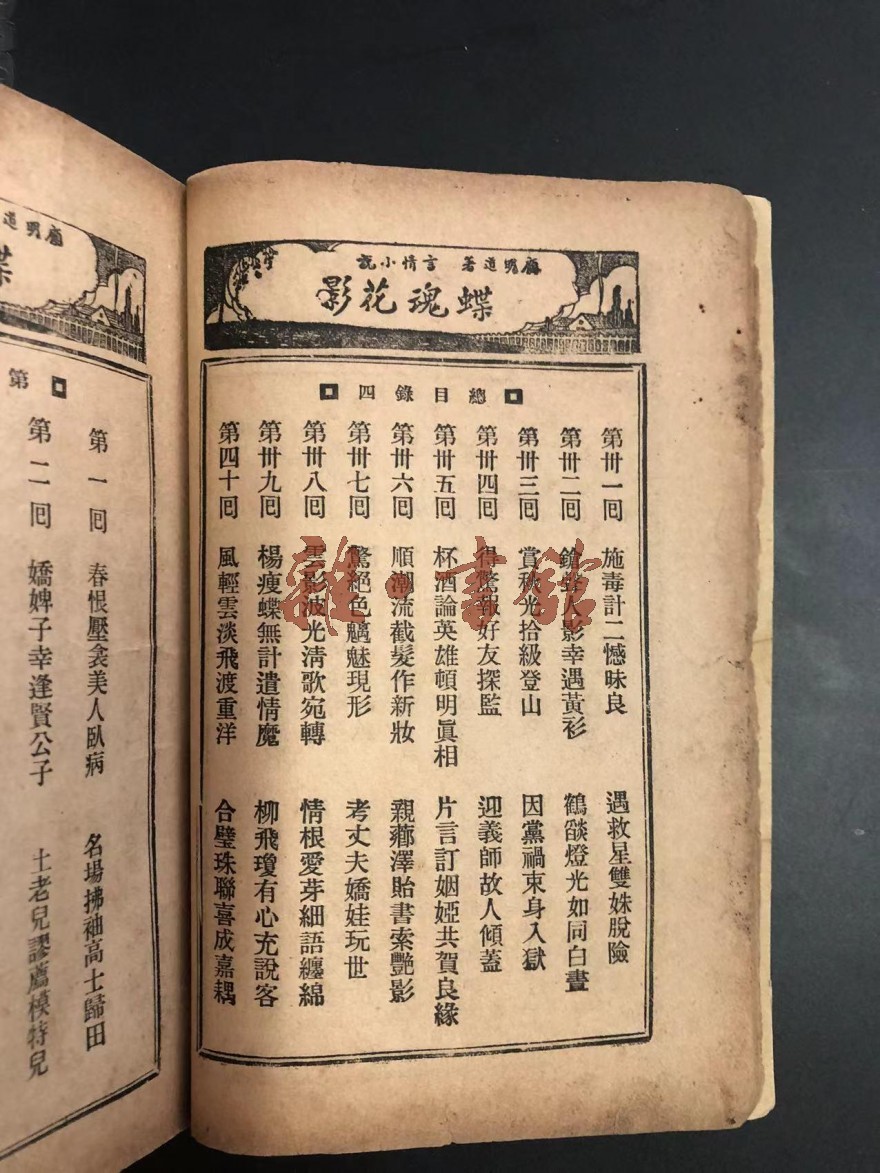 顧明道著 言情小說
蝶魂花影
總目錄四
第卅一回 施毒計二憾昧良 遇救星雙姝脫險
第卅二回 鎗聲人影幸遇黃衫 鶴燄燈光如同白晝
第卅三回 賞秋光拾級登山 因黨禍束身入獄
第卅四回 得驚報好友探監 迎義師故人傾蓋
第卅五回 杯酒論英雄頓明眞相 片言訂姻婭共賀良緣
第卅六回 順潮流截髮作新妝 親薌澤貽書索艷影
第卅七回 驚絕色魑魅現形 考丈夫嬌娃玩世
第卅八回 雲影波光淸歌宛轉 情根愛芽細語纏綿
第卅九回 楊瘦蝶無計遣情魔 柳飛瓊有心充說客
第四十回 風輕雲淡飛渡重洋 合璧珠聯喜成嘉耦
顧明道
蝶
第
第一回 春恨壓衾美人臥病 名場拂袖高士歸田
第二回 嬌婢子幸逢賢公子 土老兒謬薦模特兒
雜·書館